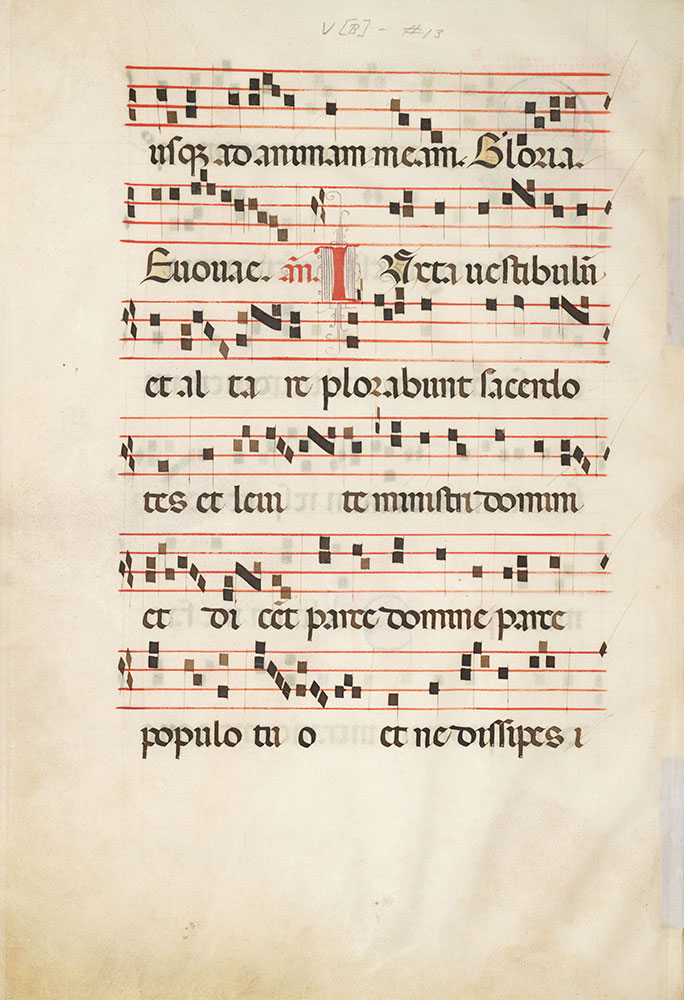 V [B] - #13
usqȝ ad animam meam. Gloria.
Euouae. añ. IUxta uestibulũ
et al ta re plorabunt sacerdo
tes et leui te ministri domini
et di cẽt parce domine parce
populo tu o et ne dissipes i